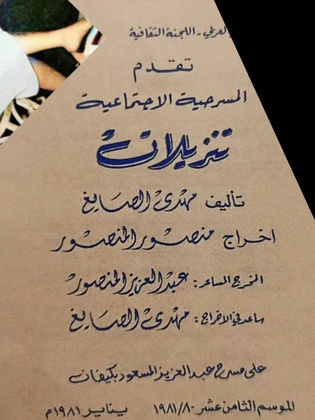 العربي - اللجنة الثقافية
تقدم
المسرحية الاجتماعية
تنزيلات
تأليف مهدي الصايغ
اخراج منصور المنصور
المخرج المساعد: عبدالعزيز المنصور
ساعد في الاخراج: مهدي الصايغ
على مسرح عبدالعزيز المسعود بكيفان
الموسم الثامن عشر ١٩٨١/٨٠ يناير ١٩٨١م